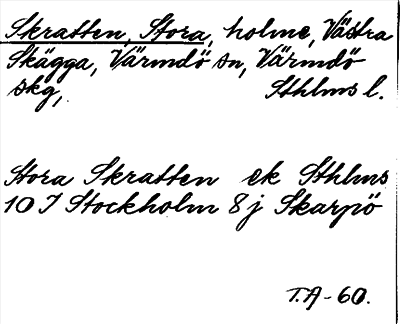 Skratten, Stora, holme, Västra
Skägga, Värmdö sn, Värmdö
skg, Sthlms l.
Stora Skratten ek Sthlms
10 I Stockholm 8 j Skarpö
T.A-60.